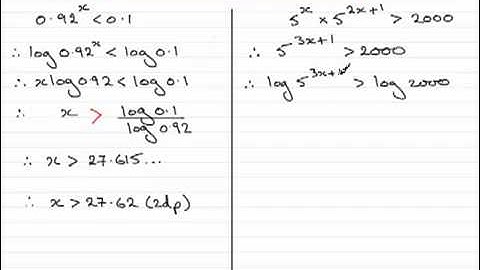 0.92^x < 0.1
∴ log 0.92^x < log 0.1
∴ x log 0.92 < log 0.1
∴ x > log 0.1 / log 0.92
∴ x > 27.615...
∴ x > 27.62 (2dp)
5^x × 5^(2x+1) > 2000
∴ 5^(3x+1) > 2000
∴ log 5^(3x+1) > log 2000